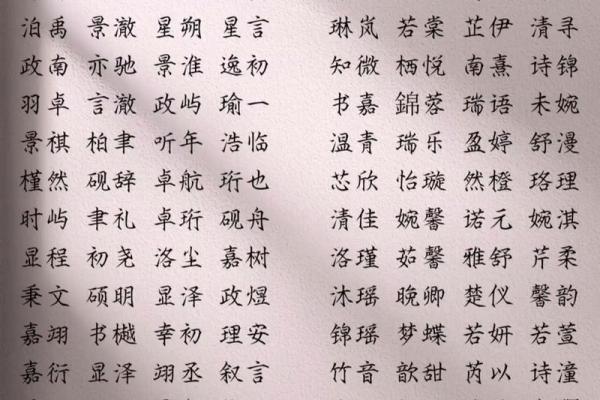 泊禹 景澈 星朔 星言 琳岚 若棠 芷伊 清寻
政南 亦驰 景淮 逸初 知微 栖悦 南熹 诗锦
羽卓 言澈 政屿 瑜一 书嘉 錦蓉 瑞语 未婉
景祺 柏聿 听年 浩临 温青 瑞乐 盈婷 舒漫
槿然 砚辞 卓航 珩也 芯欣 怡璇 然橙 珞理
时屿 聿礼 卓珩 砚舟 清佳 婉馨 诺元 婉淇
显程 初尧 洛尘 嘉树 洛瑾 茹馨 雅舒 芹柔
秉文 硕明 显泽 政煜 沐瑶 晚卿 楚仪 馨韵
嘉翊 书樾 幸初 理安 锦瑶 梦蝶 若妍 若萱
嘉衍 显泽 翊丞 叙言 竹音 歆甜 芮以 诗潼